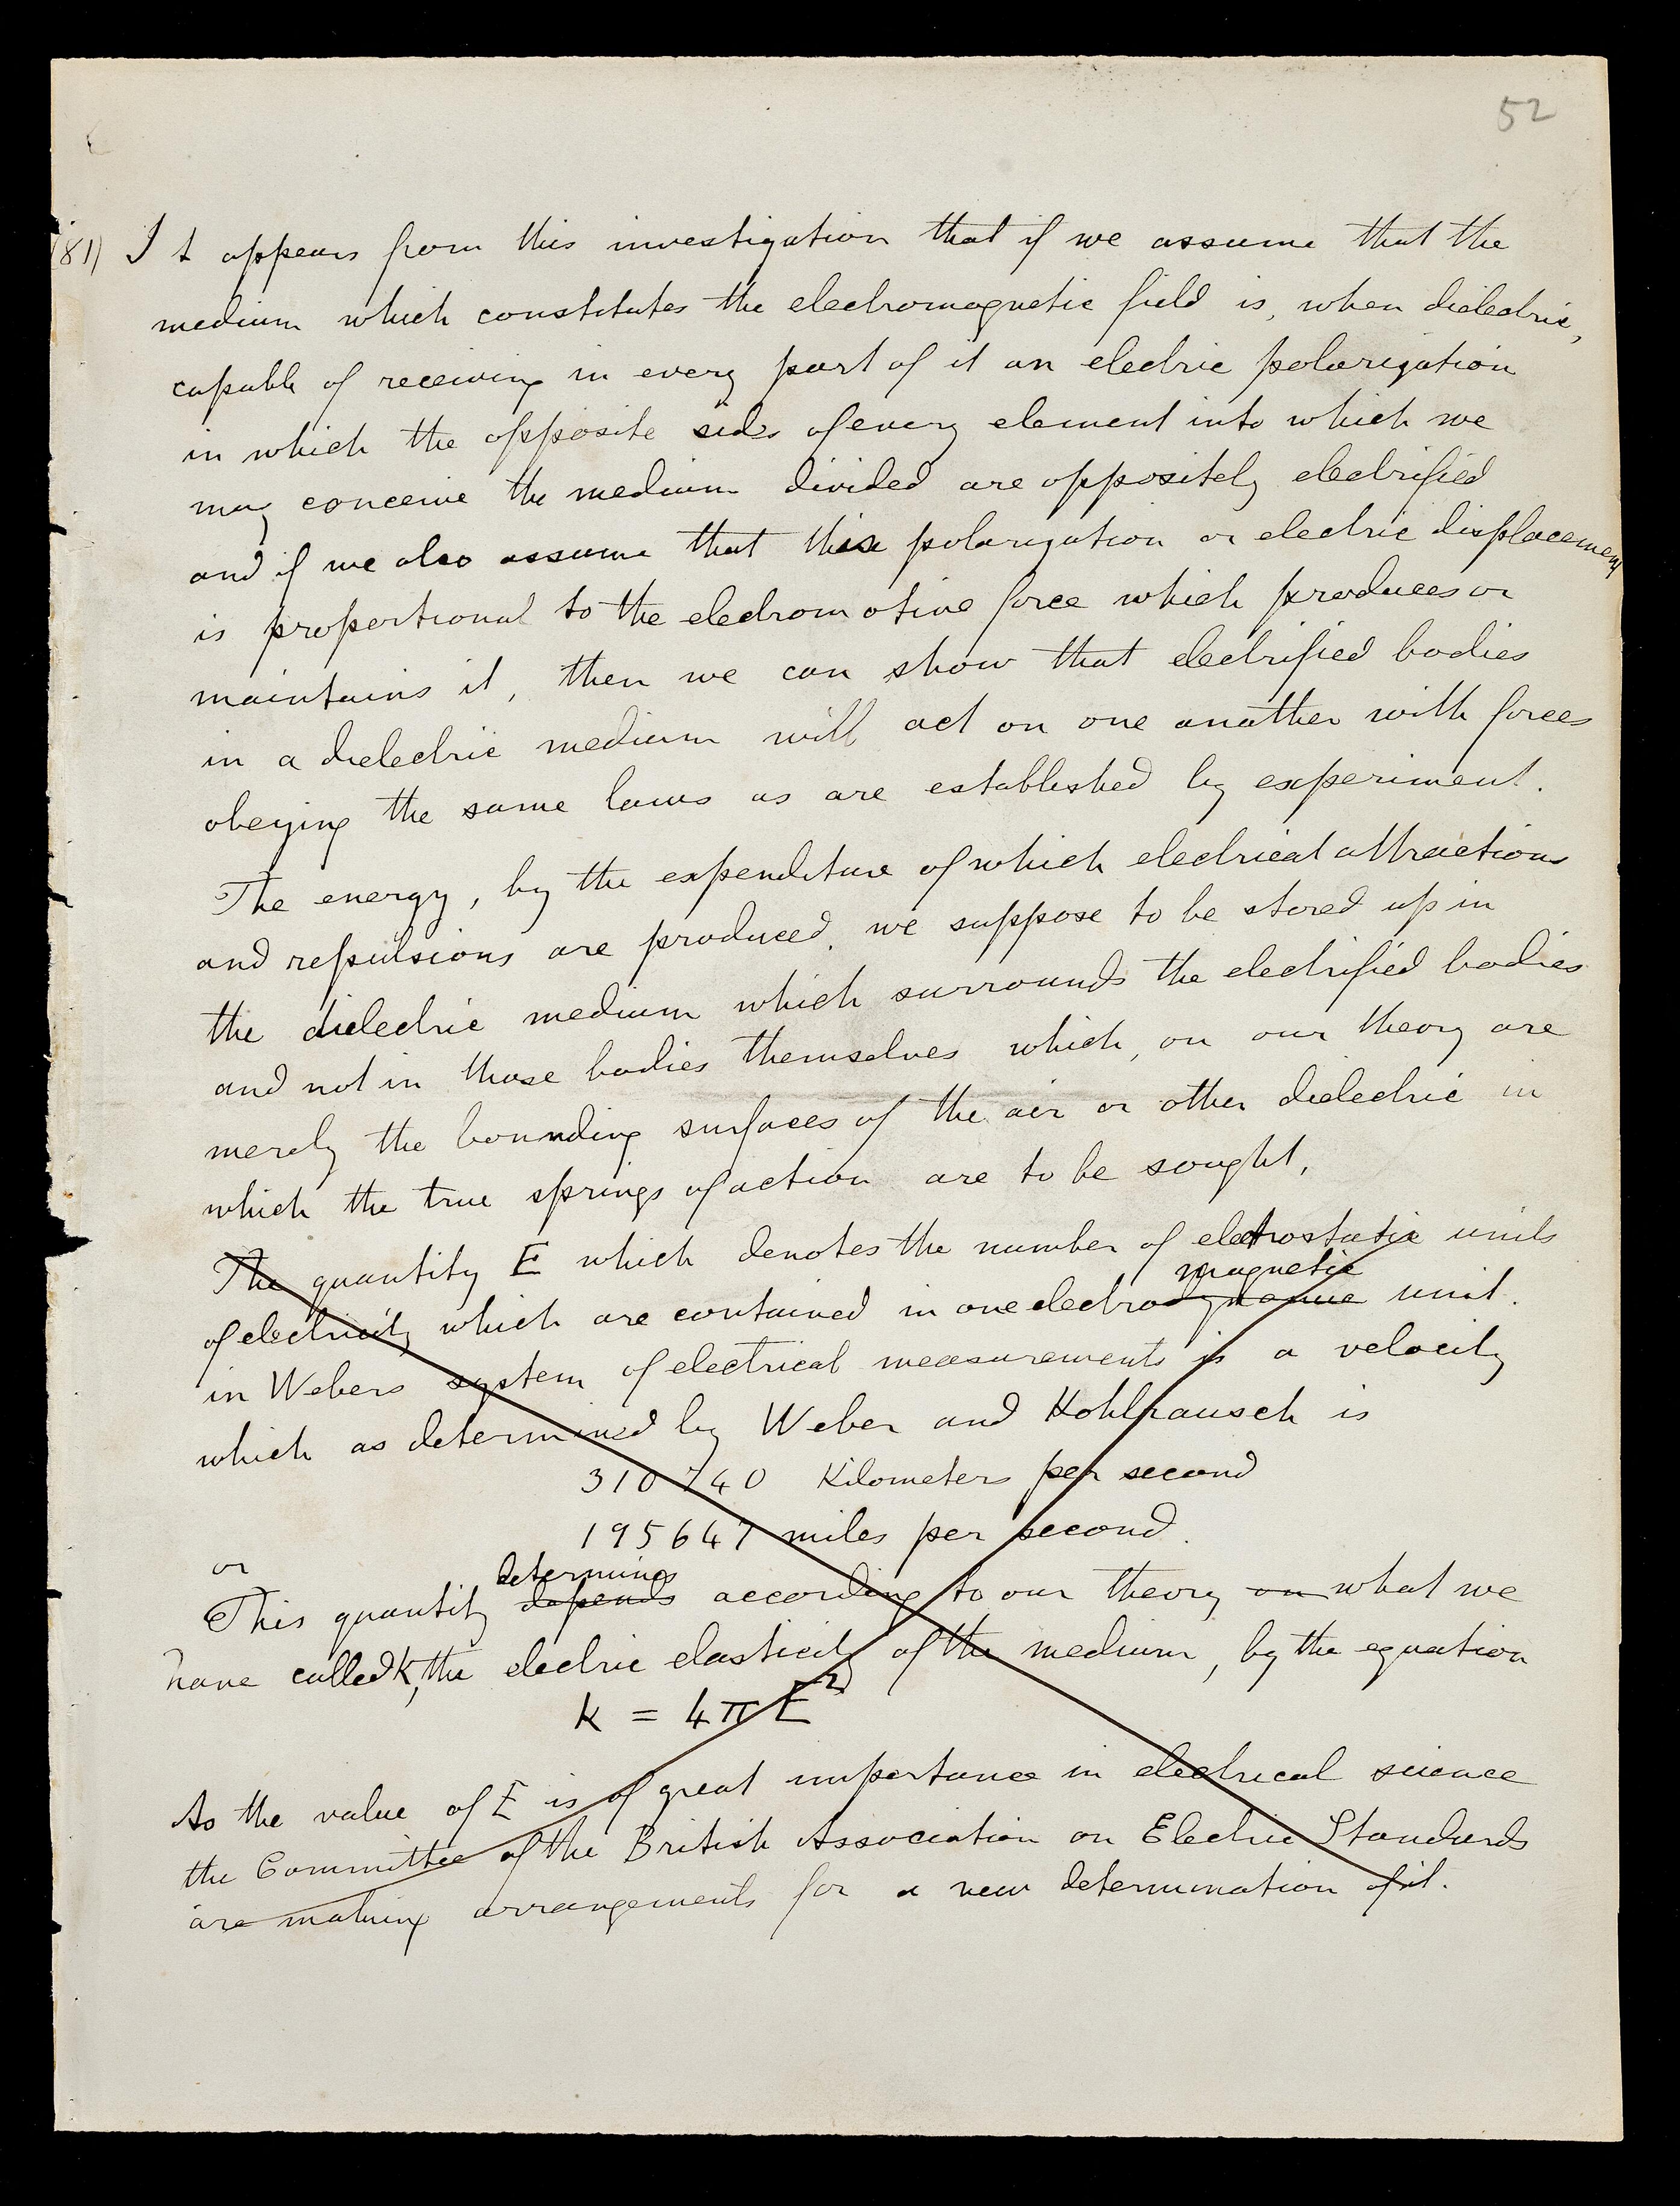 52
(81) It appears from this investigation that if we assume that the
medium which constitutes the electromagnetic field is, when dielectric,
capable of receiving in every part of it an electric polarization
in which the opposite sides of every element into which we
may conceive the medium divided are oppositely electrified
and if we also assume that this polarization or electric displacement
is proportional to the electromotive force which produces or
maintains it, then we can show that electrified bodies
in a dielectric medium will act on one another with forces
obeying the same laws as are established by experiment.
The energy, by the expenditure of which electrical attractions
and repulsions are produced, we suppose to be stored up in
the dielectric medium which surrounds the electrified bodies
and not in those bodies themselves which, on our theory are
merely the bounding surfaces of the air or other dielectric in
which the true springs of action are to be sought.
The quantity E which denotes the number of electrostatic units
magnetic
of electricity which are contained in one electrodynamic unit.
in Webers system of electrical measurements is a velocity
which as determined by Weber and Kohlrausch is
310740 Kilometers per second
195647 miles per second.
or
determines
This quantity depends according to our theory on what we
have called k, the electric elasticity of the medium, by the equation
k = 4π E²
As the value of E is of great importance in electrical science
the Committee of the British Association on Electric Standards
are making arrangements for a new determination of it.